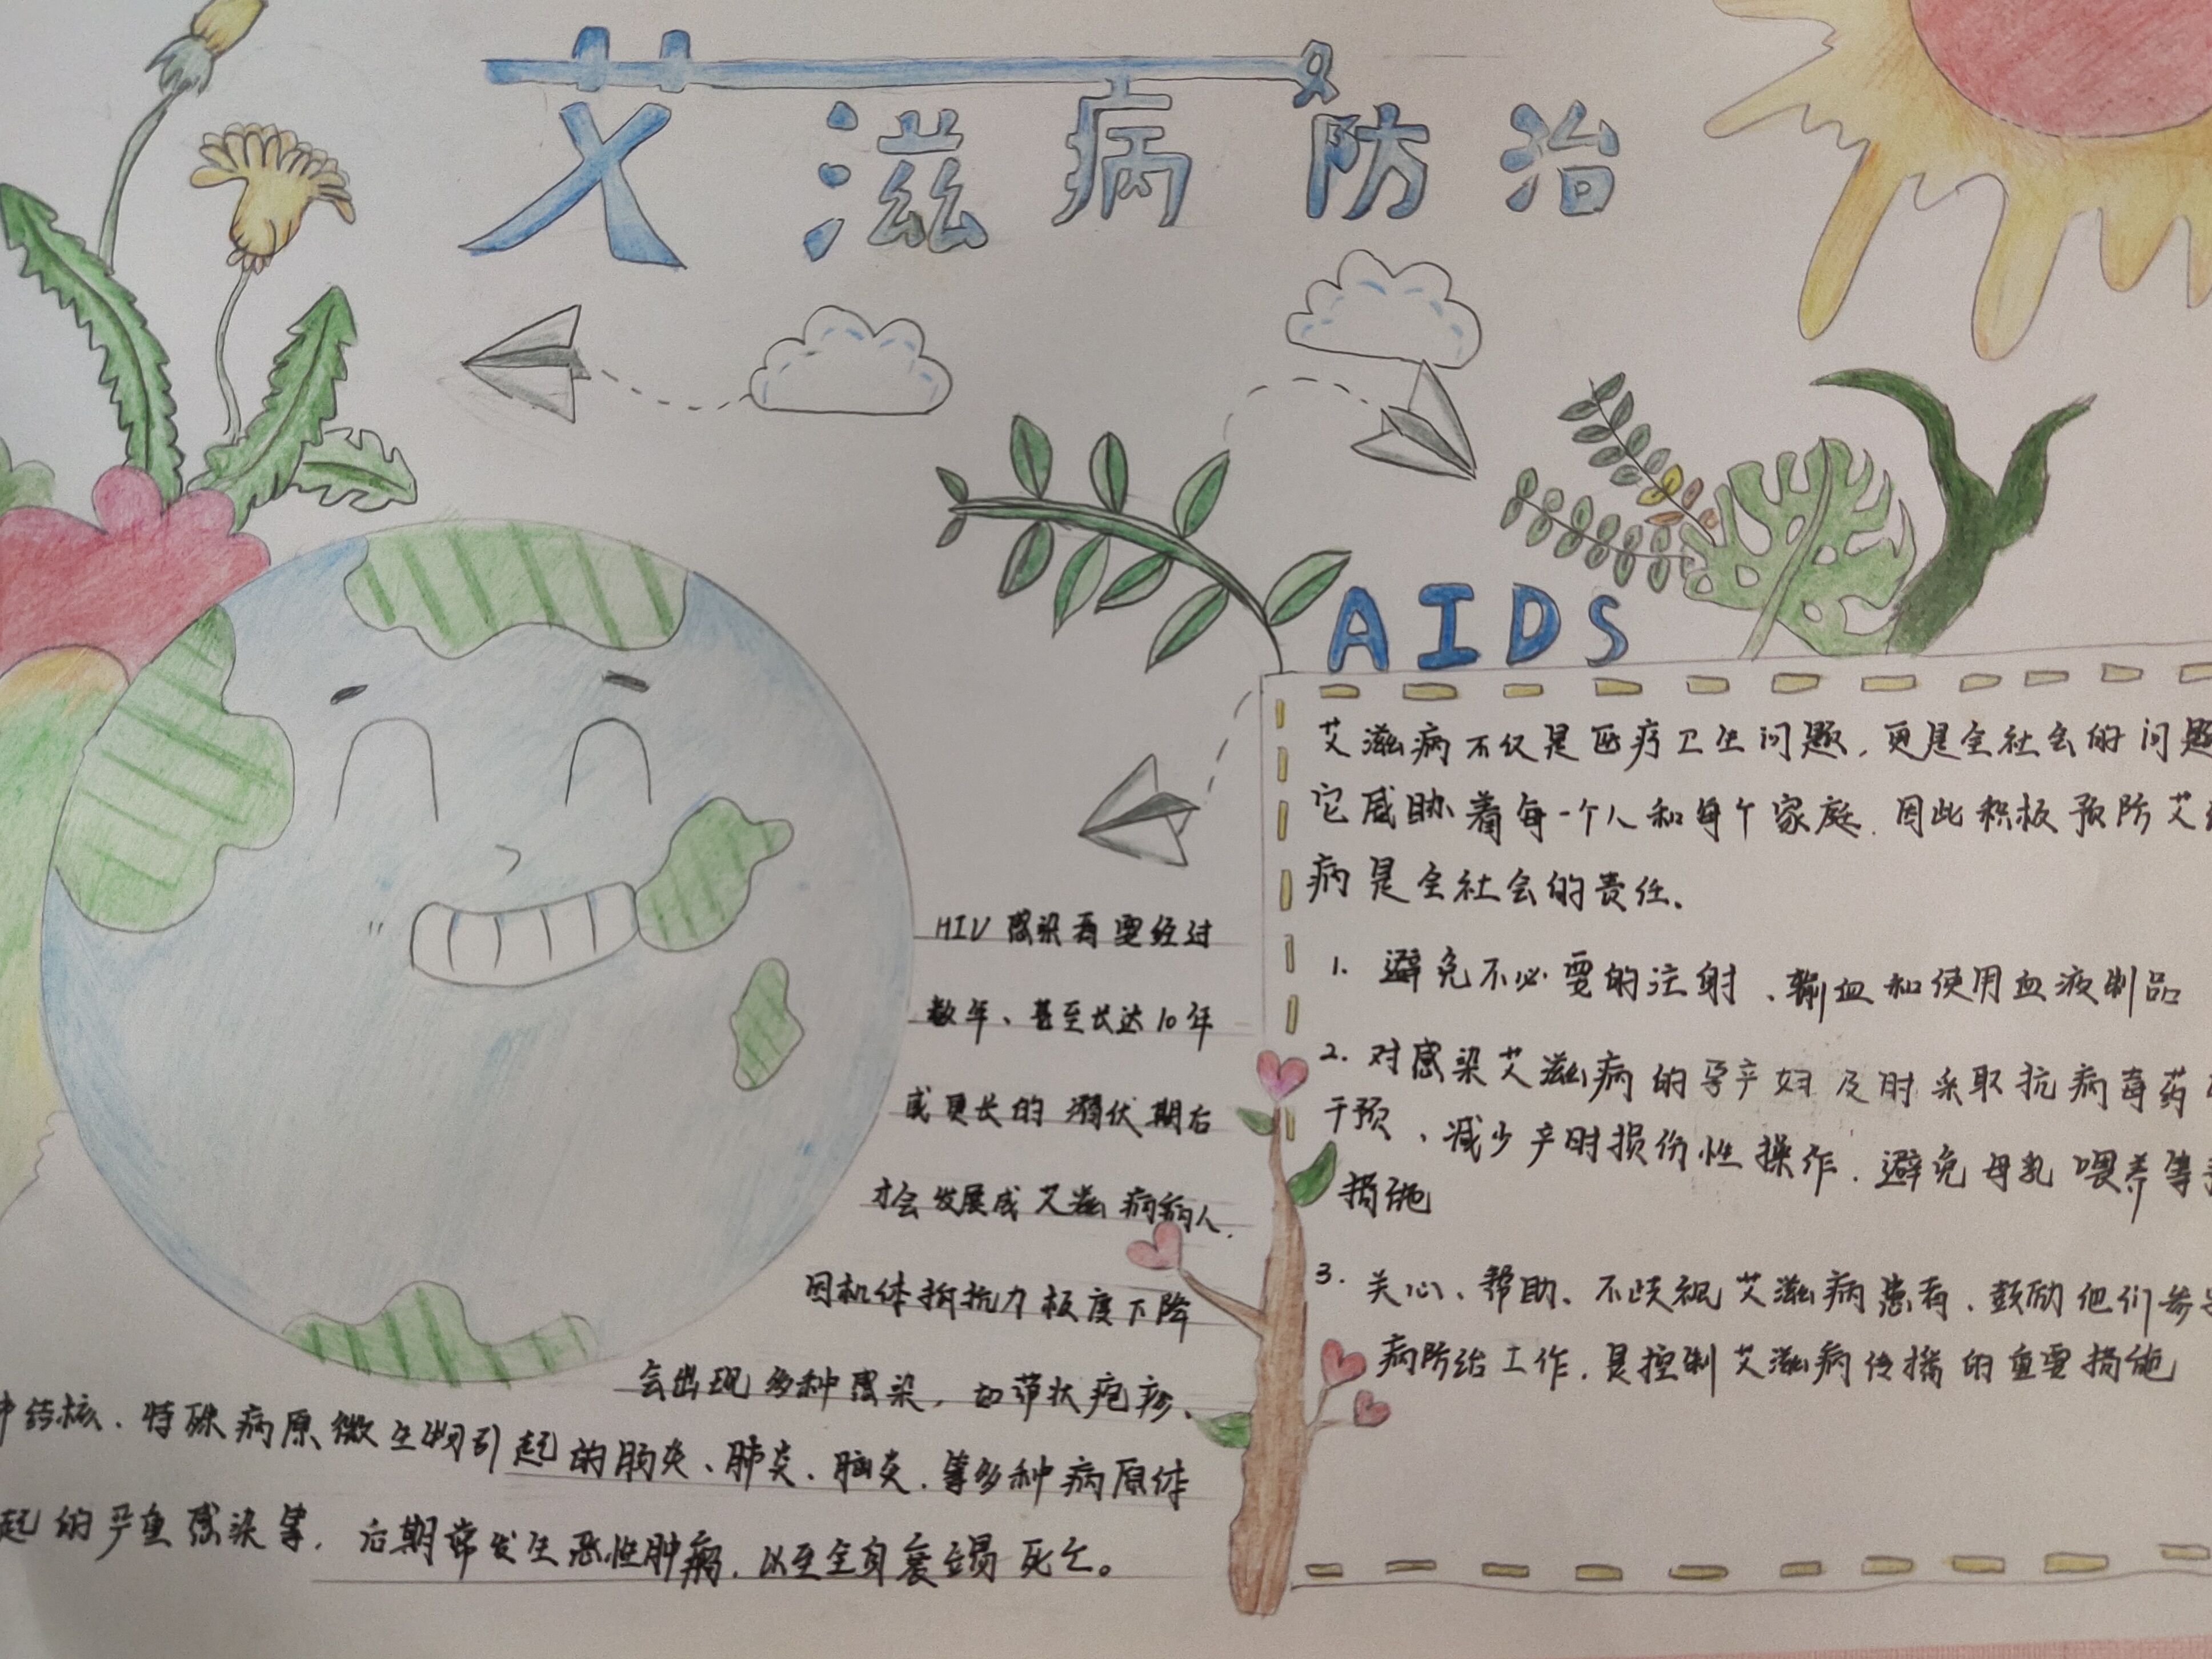 艾滋病防治
AIDS
艾滋病不仅是医疗卫生问题,更是全社会的问题
它威胁着每一个人和每个家庭.因此积极预防艾
病是全社会的责任.
1. 避免不必要的注射、输血和使用血液制品
2. 对感染艾滋病的孕产妇及时采取抗病毒药
干预、减少产时损伤性操作.避免母乳喂养等
措施
3. 关心、帮助、不歧视艾滋病患者,鼓励他们参与
病防治工作,是控制艾滋病传播的重要措施
HIV感染者要经过
数年、甚至长达10年
或更长的潜伏期后
才会发展成艾滋病病人.
因机体抵抗力极度下降
会出现多种感染,如带状疱疹、
结核、特殊病原微生物引起的肠炎、肺炎、脑炎、等多种病原体
起的严重感染等,后期常发生恶性肿瘤,以至全身衰竭死亡。